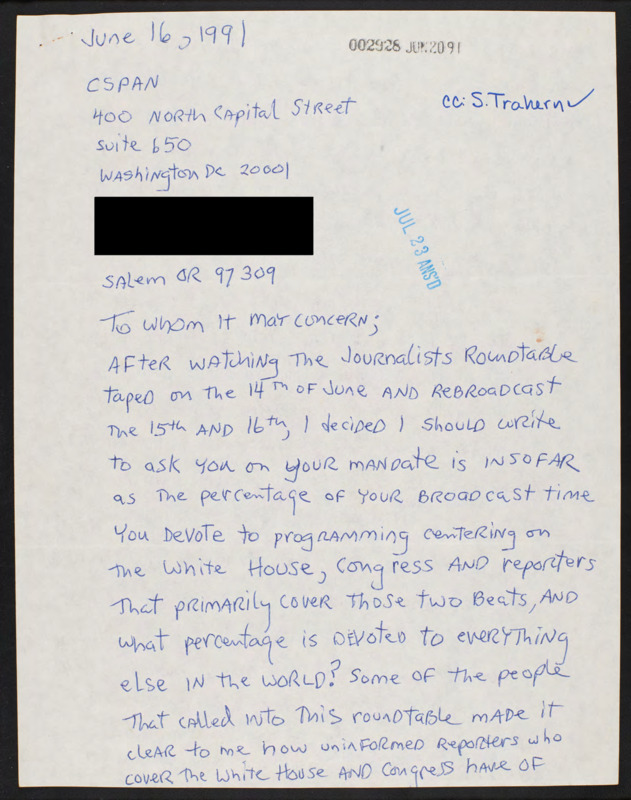 June 16, 1991
002928 JUN 20 91
CSPAN
cc: S. Trahern ✓
400 North Capital Street
Suite 650
Washington DC 20001
JUL 23 ANS'D
Salem OR 97309
To Whom It May Concern;
After watching the Journalists Roundtable
taped on the 14th of June and rebroadcast
the 15th and 16th, I decided I should write
to ask you on your mandate is insofar
as the percentage of your broadcast time
you devote to programming centering on
the White House, Congress and reporters
that primarily cover those two beats, and
what percentage is devoted to everything
else in the world? Some of the people
that called into this roundtable made it
clear to me how uninformed reporters who
cover the White House and Congress have of